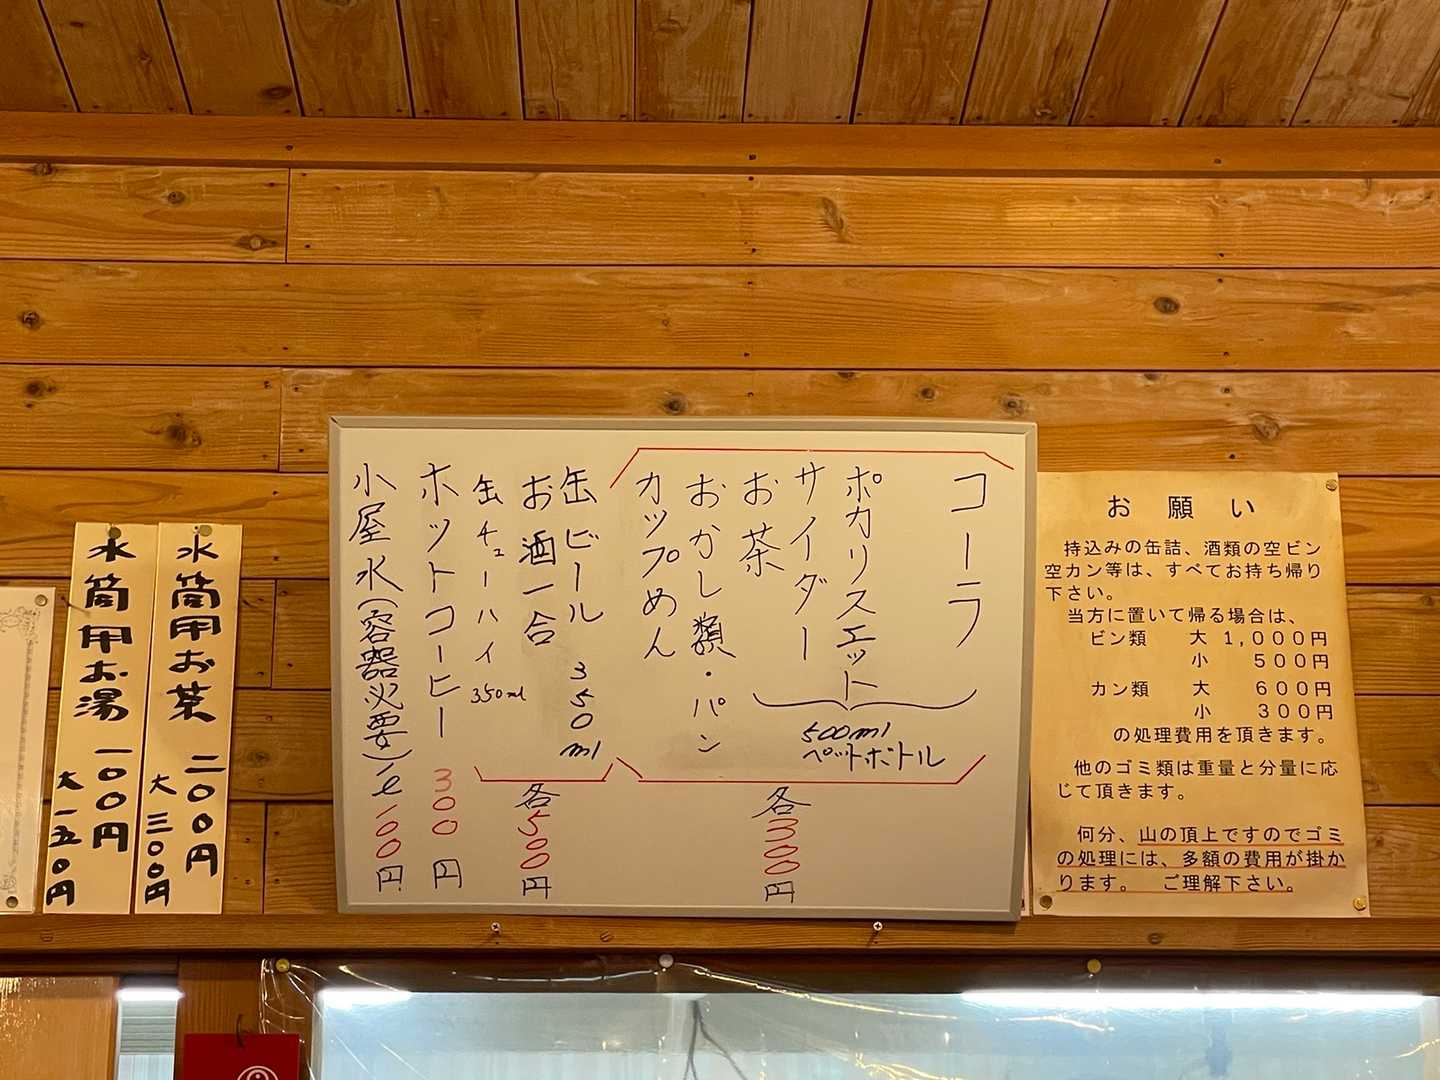 コーラ
ポカリスエット
サイダー
お茶
500ml
ペットボトル
おかし類・パン
カップめん
各300円
缶ビール 350ml
お酒一合
缶チューハイ 350ml
各500円
ホットコーヒー 300円
小屋水(容器必要)1ℓ 100円
水筒用お茶 二〇〇円
大 三〇〇円
水筒用お湯 一〇〇円
大 一五〇円
お願い
持込みの缶詰、酒類の空ビン
空カン等は、すべてお持ち帰り
下さい。
当方に置いて帰る場合は、
ビン類 大 1,000円
小 500円
カン類 大 600円
小 300円
の処理費用を頂きます。
他のゴミ類は重量と分量に応
じて頂きます。
何分、山の頂上ですのでゴミ
の処理には、多額の費用が掛か
ります。 ご理解下さい。